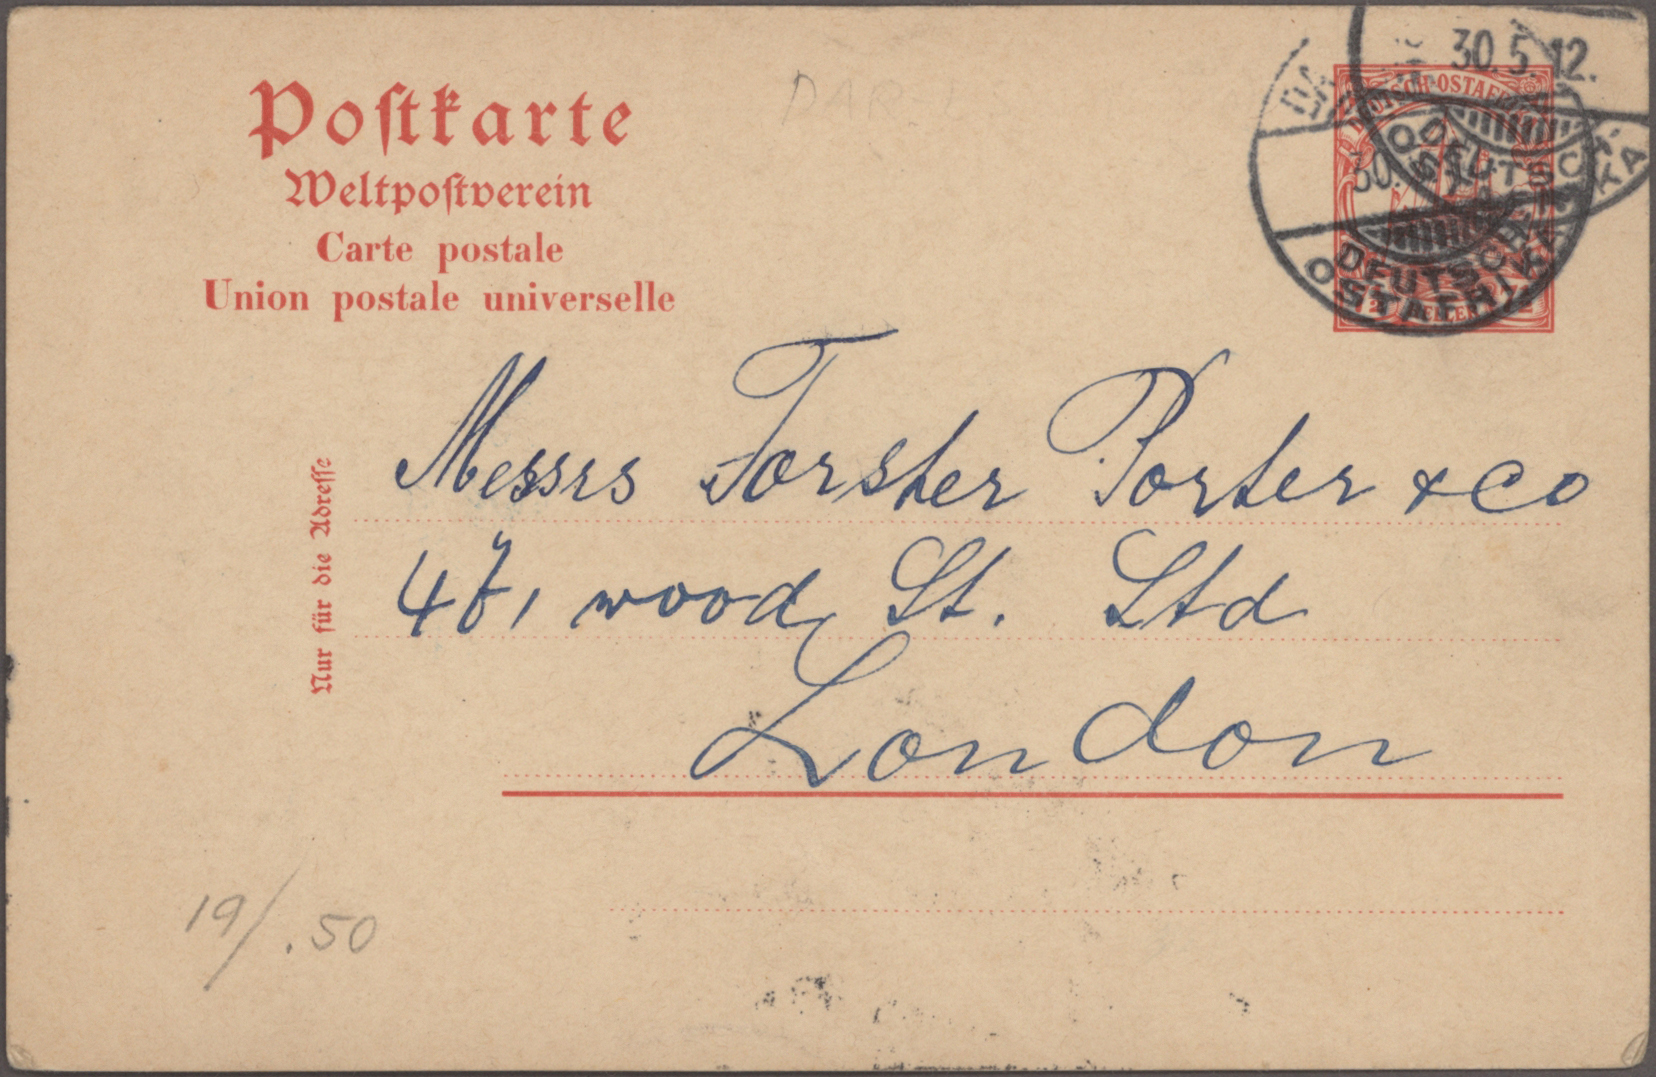 Postkarte
Weltpostverein
Carte postale
Union postale universelle
DAR-ES
30.5.12.
DEUTSCH-OSTAFRIKA
DEUTSCH
OSTAFRIKA
30.
DEUTSCH
OSTAFRIKA
7½ HELLER 7½
Nur für die Adresse
Messrs Forster Porter & Co
47, wood St. Ltd
London
19/.50